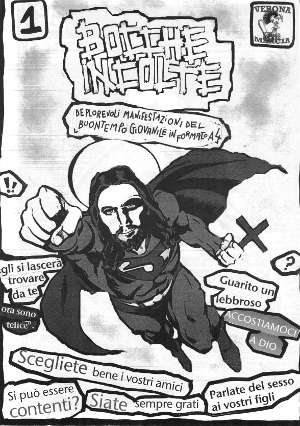 1
BOCCHE
INCOLTE
DEPLOREVOLI MANIFESTAZIONI DEL
BUONTEMPO GIOVANILE IN FORMATO A4
VERONA
MARCIA
!!
?
gli si lascerà
trovare
da te
ora sono
felice".
Guarito un
lebbroso
ACCOSTIAMOCI
A DIO
Scegliete bene i vostri amici
Si può essere
contenti?
Siate sempre grati
Parlate del sesso
ai vostri figli